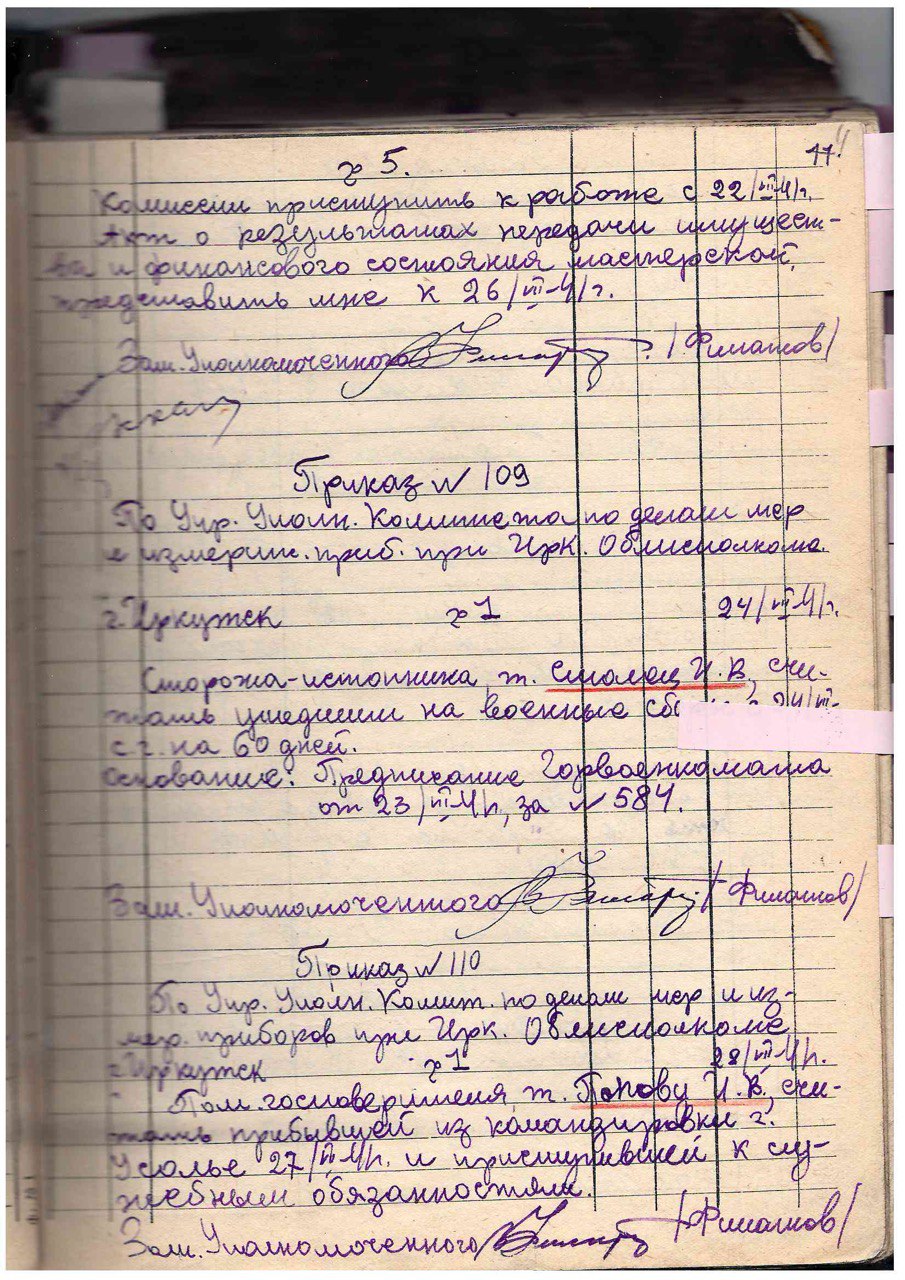 11.
§ 5.
Комиссии приступить к работе с 22/VII-41г.
Акт о результатах передачи имущест-
ва и финансового состояния мастерской,
представить мне к 26/VII-41г.
Зам. Уполномоченного /Филатов/
Приказ № 109
По Упр. Уполн. Комитета по делам мер
и измерит. приб. при Ирк. Облисполкоме.
г. Иркутск § 1 24/VII-41г.
Сторожа-истопника, т. И.В., счи-
тать ушедшим на военные 24/VII-
с.г. на 60 дней.
Основание: Предписание Горвоенкомата
от 23/VII-41г., за № 584.
Зам. Уполномоченного /Филатов/
Приказ № 110
По Упр. Уполн. Комит. по делам мер и из-
мер. приборов при Ирк. Облисполкоме
г. Иркутск § 1 28/VII-41г.
Пом. госповерителя, т. Попову И.В., счи-
тать прибывшей из командировки г.
Усолье 27/VII-41г. и приступившей к слу-
жебным обязанностям.
Зам. Уполномоченного /Филатов/